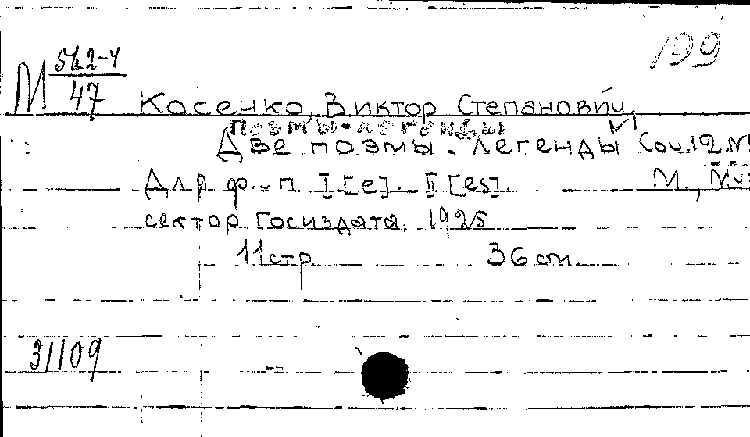 199
М 562-4/47
Косенко, Виктор Степанович
Поэмы-легенды
Две поэмы-легенды Соч. 12 №
Для ф.-п. I [e]. II [es] М., Муз.
сектор Госиздата, 1925
11 стр. 36 см.
31109